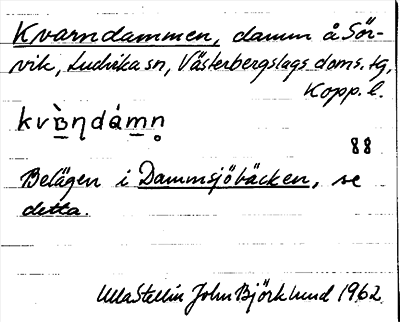 Kvarndammen, damm å Sör-
vik, Ludvika sn, Västerbergslags doms. tg,
Kopp. l.
88
Belägen i Dammsjöbäcken, se
detta.
Ulla Stellin John Björklund 1962